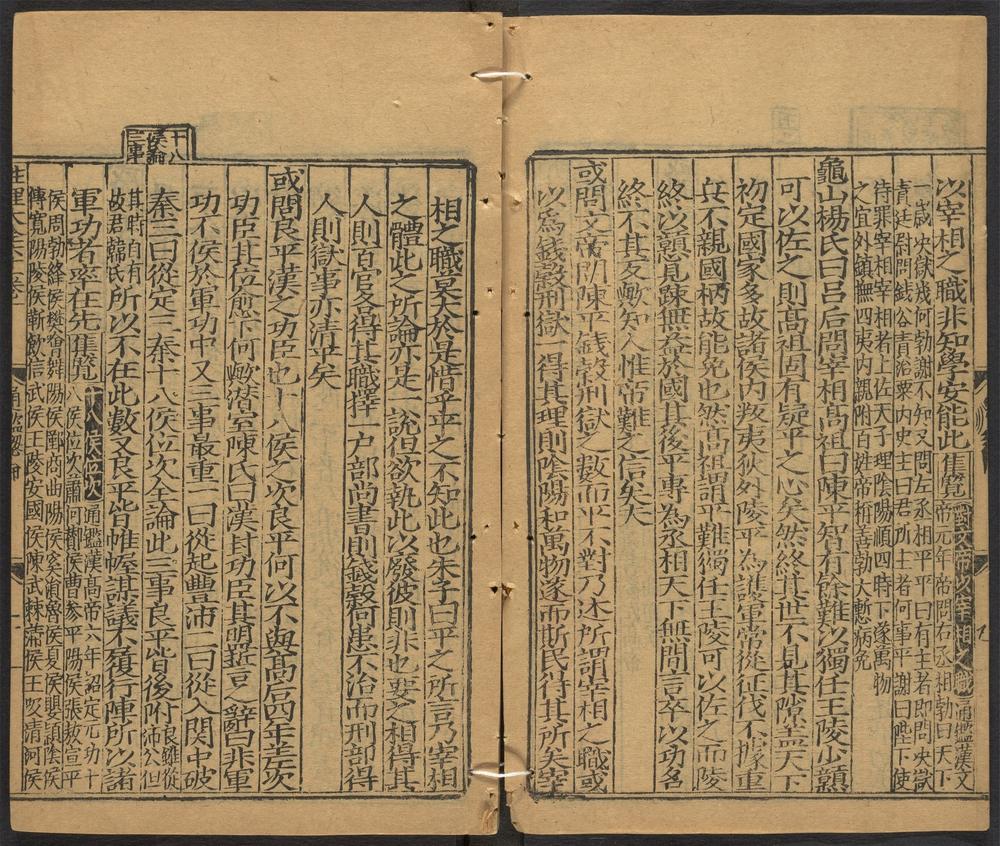 以宰相之職非知學安能此集覽問文帝以宰相之職通鑑漢文
帝元年帝問右丞相勃曰天下
一歲決獄幾何勃謝不知又問左丞相平平曰有主者即問決獄
責廷尉問錢谷責治粟內史上曰君所主者何事平謝曰陛下使
待罪宰相宰相者上佐天子理陰陽順四時下遂萬物
之宜外鎮撫四夷內親附百姓帝稱善勃大慙病免
龜山楊氏曰呂后問宰相高祖曰陳平智有餘難以獨任王陵少戇
可以佐之則高祖固有疑平之心矣然終其世不見其隙盖天下
初定國家多故諸侯內叛夷狄外陵平為護軍常從征伐不據重
兵不親國柄故能免也然高祖謂平難獨任王陵可以佐之而陵
終以戇見踈無益於國其後平專為丞相天下無間言卒以功名
終不其反歟知人惟帝難之信矣夫
或問文帝問陳平錢穀刑獄之數而平不對乃述所謂宰相之職或
以爲錢穀刑獄一得其理則陰陽和萬物遂而斯民得其所矣宰
相之職莫大於是惜乎平之不知此也朱子曰平之所言乃宰相
之體此之所論亦是一說但欲執此以廢彼則非也要之相得其
人則百官各得其職擇一户部尚書則錢穀何患不治而刑部得
人則獄事亦清平矣
或問良平漢之功臣也十八侯之次良平何以不與高后四年差次
功臣其位愈下何歟潜室陳氏曰漢封功臣其明盟言之辭曰非軍
功不侯於軍功中又三事最重一曰從起豐沛二曰從入関中破
秦三曰從定三秦十八侯位次全論此三事良平皆後附良雖從
沛公但
其時自有
故君韓氏所以不在此數又良平皆帷幄謀議不履行陣所以諸
十八
侯論
三事
軍功者率在先集覽十八侯位次通鑑漢高帝六年詔定元功十
八侯位次蕭何酇侯曹參平陽侯張敖宣平
侯周勃絳侯樊噲舞陽侯酈商曲周侯奚涓魯侯夏侯嬰汝陰侯
傅寬陽陵侯靳歙信武侯王陵安國侯陳武棘蒲侯王吸清河侯